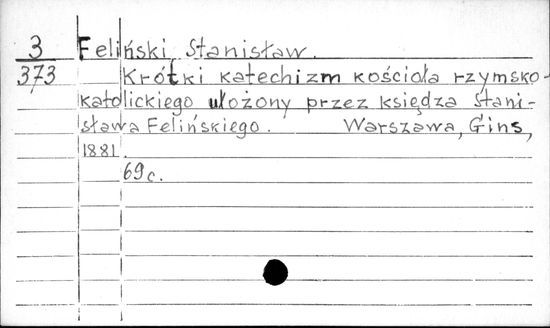 3 Feliński Stanisław.
373 Krótki katechizm kościoła rzymsko-
katolickiego ułożony przez księdza Stani-
sława Felińskiego. Warszawa, Gins,
1881.
69c.